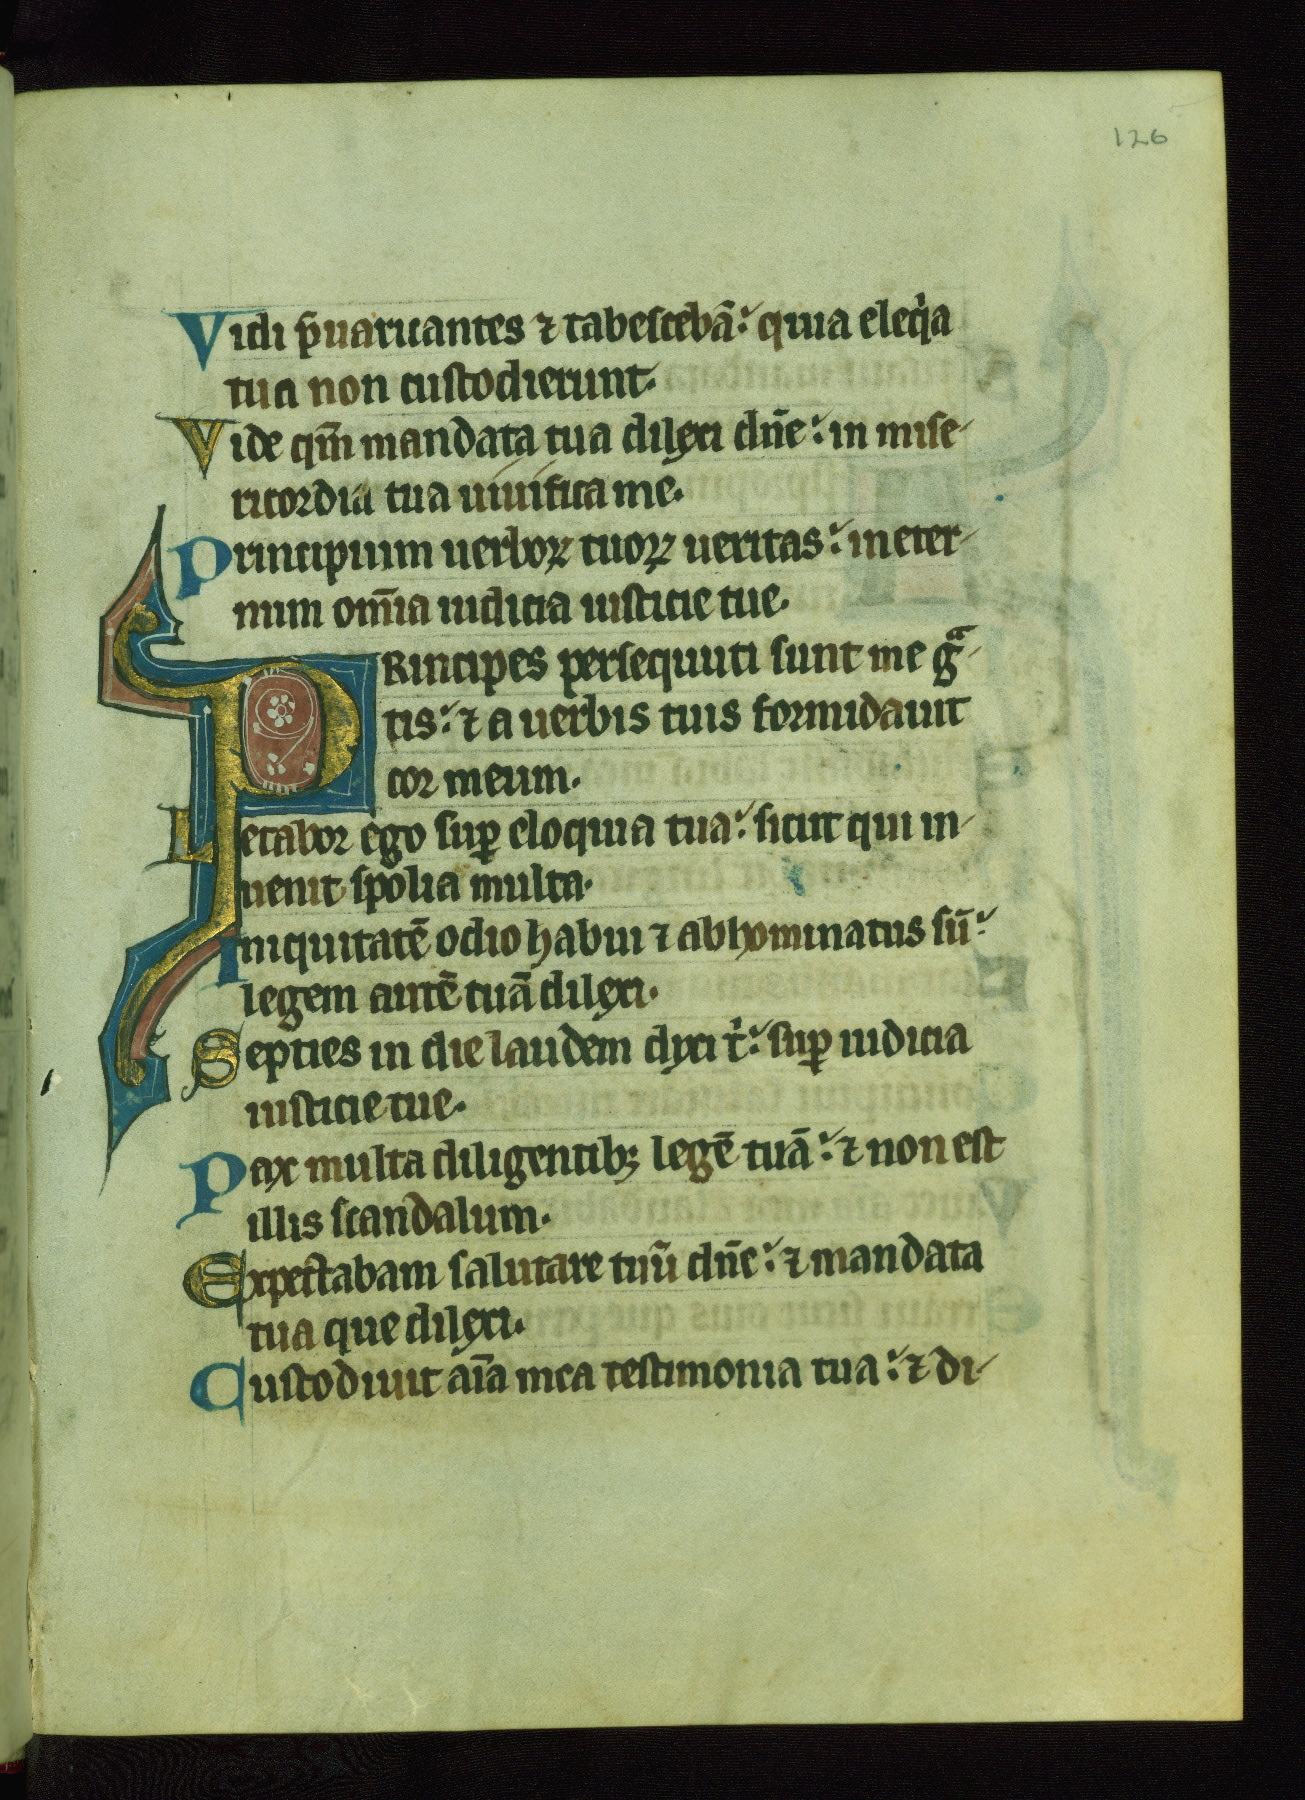 126
Vidi p̄uaricantes ⁊ tabescebā: quia eleq̇a
tua non custodierunt.
Vide qm̄ mandata tua dilexi dn̄e: in mise-
ricordia tua uiuifica me.
Principium uerboꝝ tuoꝝ ueritas: in eter-
num om̄ia iudicia iusticie tue.
PRincipes persequuti sunt me gᷓ-
tis: ⁊ a uerbis tuis formidauit
cor meum.
Letabor ego suꝑ eloquia tua: sicut qui in-
uenit spolia multa.
Iniquitatē odio habui ⁊ abhominatus sū:
legem autē tuā dilexi.
Septies in die laudem dixi tⁱ: suꝑ iudicia
iusticie tue.
Pax multa diligentibꝫ legē tuā: ⁊ non est
illis scandalum.
Expectabam salutare tuū dn̄e: ⁊ mandata
tua que dilexi.
Custodiuit aīa mea testimonia tua: ⁊ di-